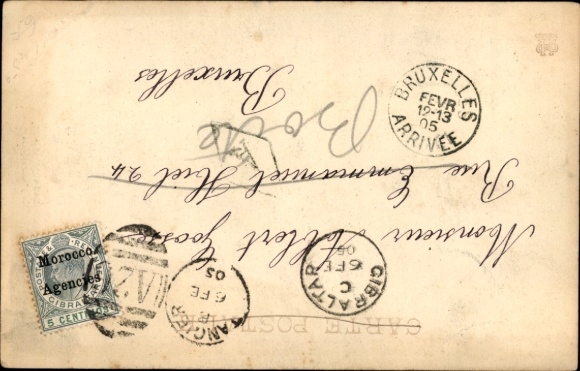 CARTE POSTALE
Monsieur Albert Goosse
Rue Emmanuel Hiel 24
Bruxelles
Boîte
BRUXELLES
FEVR
12-13
05
ARRIVÉE
GIBRALTAR
C
6 FE
05
TANGIER
6 FE
05
A26
Morocco
Agencies
GIBRALTAR
5 CENTIMOS